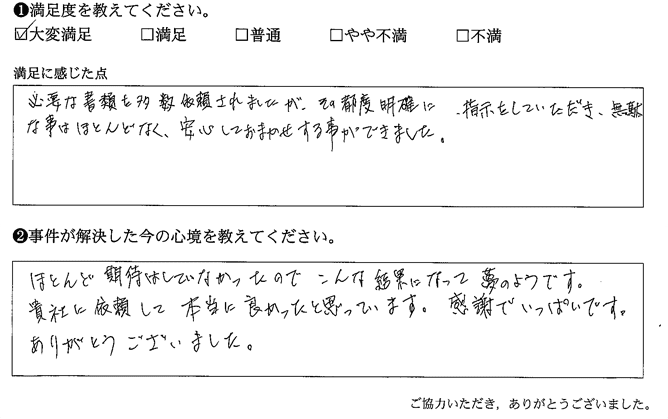 ❶満足度を教えてください。
☑大変満足 □満足 □普通 □やや不満 □不満
満足に感じた点
必要な書類を多数依頼されましたが、その都度明確に、指示をしていただき、無駄
な事はほとんどなく、安心しておまかせする事ができました。
❷事件が解決した今の心境を教えてください。
ほとんど期待はしていなかったので こんな結果になって夢のようです。
貴社に依頼して本当に良かったと思っています。感謝でいっぱいです。
ありがとうございました。
ご協力いただき，ありがとうございました。